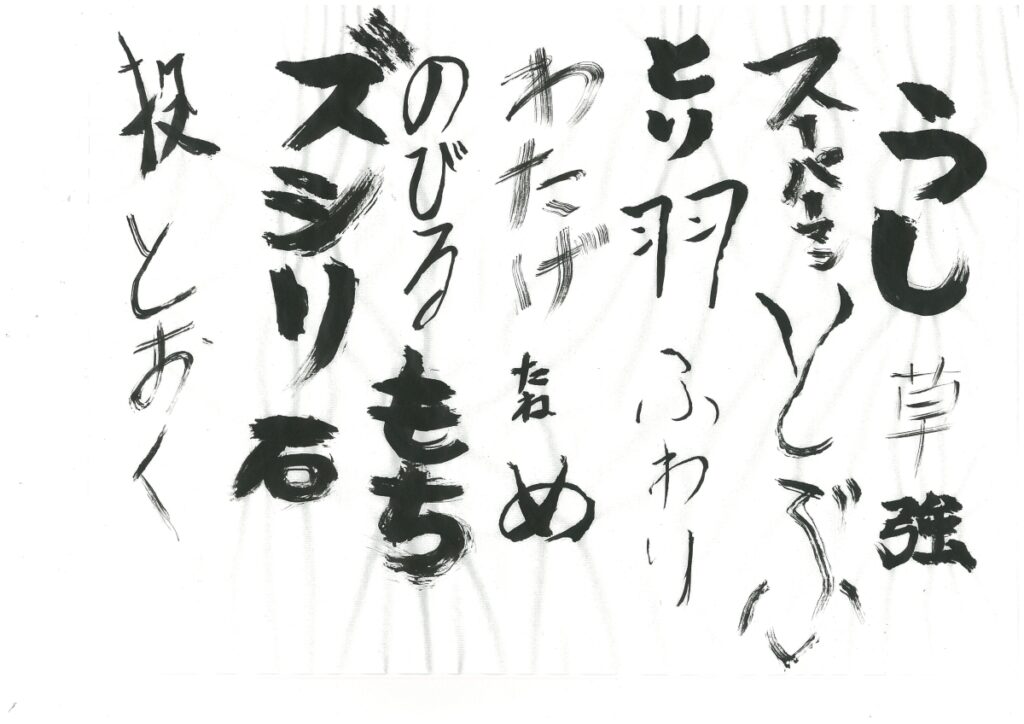 うし 草 強
スーパーマン とぶ
とり 羽 ふわり
わたげ たね め
のびる もち
ズシリ 石
投 とおく